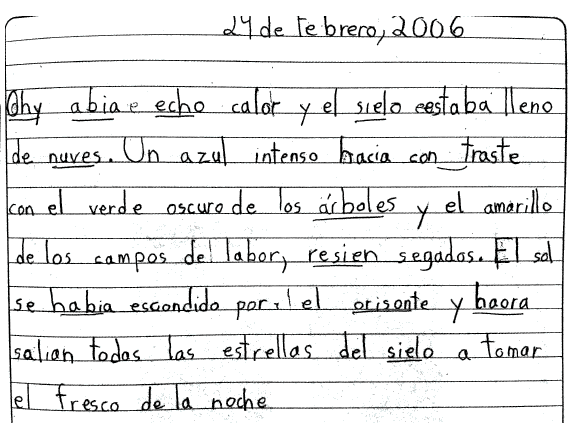 24 de Febrero, 2006
Ohy abia e echo calor y el sielo eestaba lleno
de nuves. Un azul intenso hacia con traste
con el verde oscuro de los árboles y el amarillo
de los campos de labor, resien segados. El sol
se habia escondido por el orisonte y haora
salian todas las estrellas del sielo a tomar
el fresco de la noche